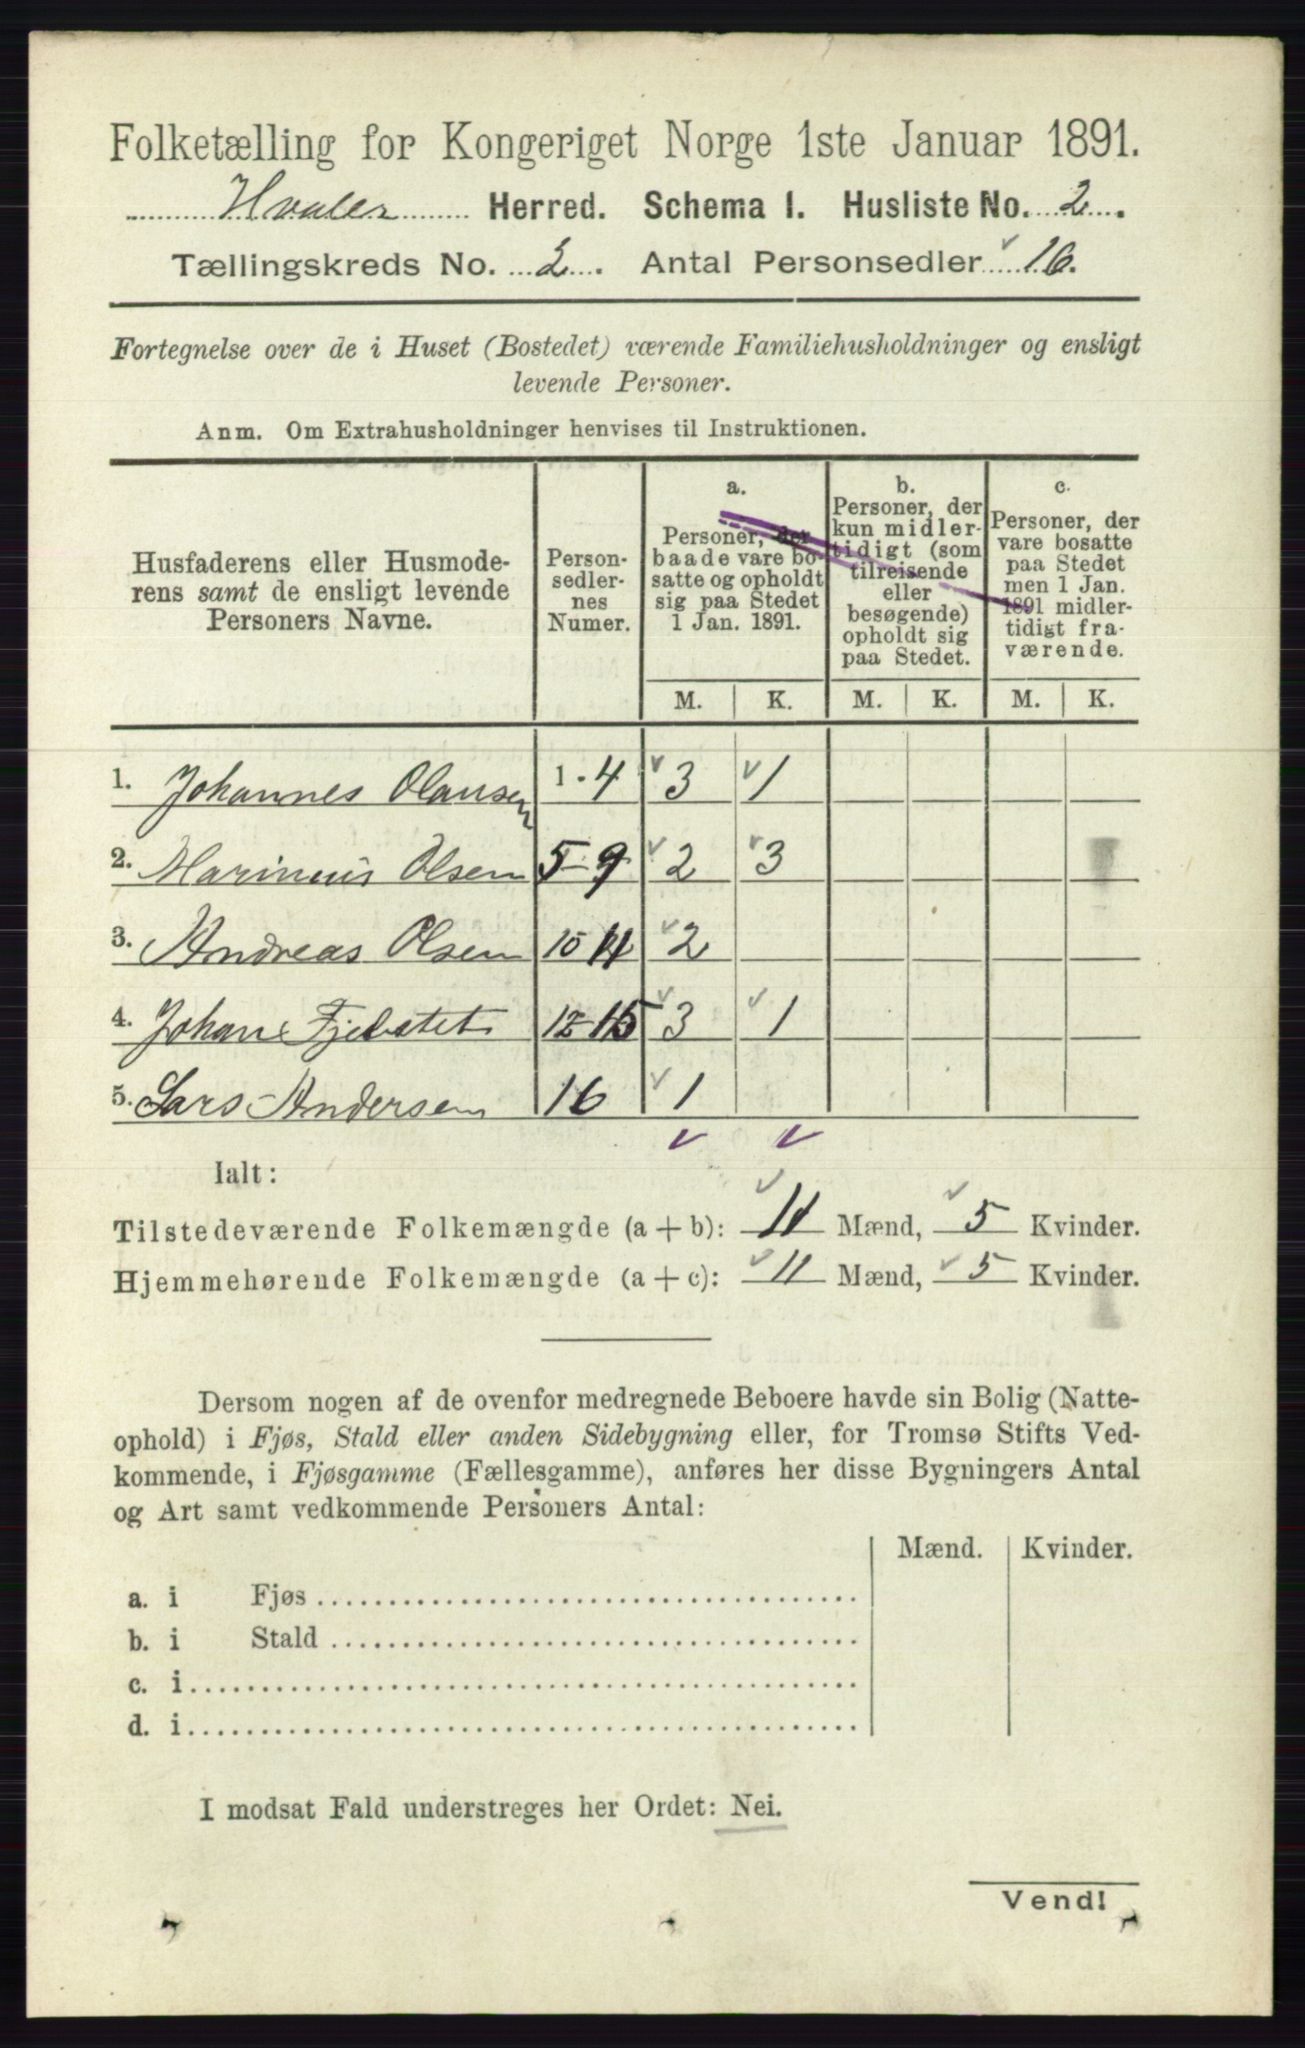 Folketælling for Kongeriget Norge 1ste Januar 1891.
Hvaler Herred. Schema I. Husliste No. 2.
Tællingskreds No. 2. Antal Personsedler 16.
Fortegnelse over de i Huset (Bostedet) værende Familiehusholdninger og ensligt
levende Personer.
Anm. Om Extrahusholdninger henvises til Instruktionen.
Husfaderens eller Husmode-
rens samt de ensligt levende
Personers Navne.
Person-
sedler-
nes
Numer.
a.
Personer, der
baade vare bo-
satte og opholdt
sig paa Stedet
1 Jan. 1891.
b.
Personer, der
kun midler-
tidigt (som
tilreisende
eller
besøgende)
opholdt sig
paa Stedet.
c.
Personer, der
vare bosatte
paa Stedet
men 1 Jan.
1891 midler-
tidigt fra-
værende.
M. K. M. K. M. K.
1. Johannes Olausen 1-4 3 1
2. Marinius Olsen 5-9 2 3
3. Andreas Olsen 10 11 2
4. Johan 12-15 3 1
5. Lars Andersen 16 1
Ialt:
Tilstedeværende Folkemængde (a + b): 11 Mænd, 5 Kvinder.
Hjemmehørende Folkemængde (a + c): 11 Mænd, 5 Kvinder.
Dersom nogen af de ovenfor medregnede Beboere havde sin Bolig (Natte-
ophold) i Fjøs, Stald eller anden Sidebygning eller, for Tromsø Stifts Ved-
kommende, i Fjøsgamme (Fællesgamme), anføres her disse Bygningers Antal
og Art samt vedkommende Personers Antal:
Mænd. Kvinder.
a. i Fjøs
b. i Stald
c. i
d. i
I modsat Fald understreges her Ordet: Nei.
Vend!